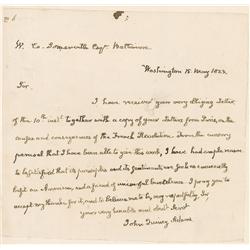 W. C. Somerville Esqr. Baltimore.
Washington 15. May 1822.
Sir.
I have received your very obliging Letter
of the 10th inst. together with a copy of your Letters from Paris, on the
causes and consequences of the French Revolution. From the cursory
perusal that I have been able to give this work, I have had ample reason
to be satisfied that its principles and its sentiments are such as
an American, and a friend of Liberty. I pray you to
accept my thanks for it, and to believe me to be very respectfully, Sir
your very humble and obedt. Servt.
John Quincy Adams